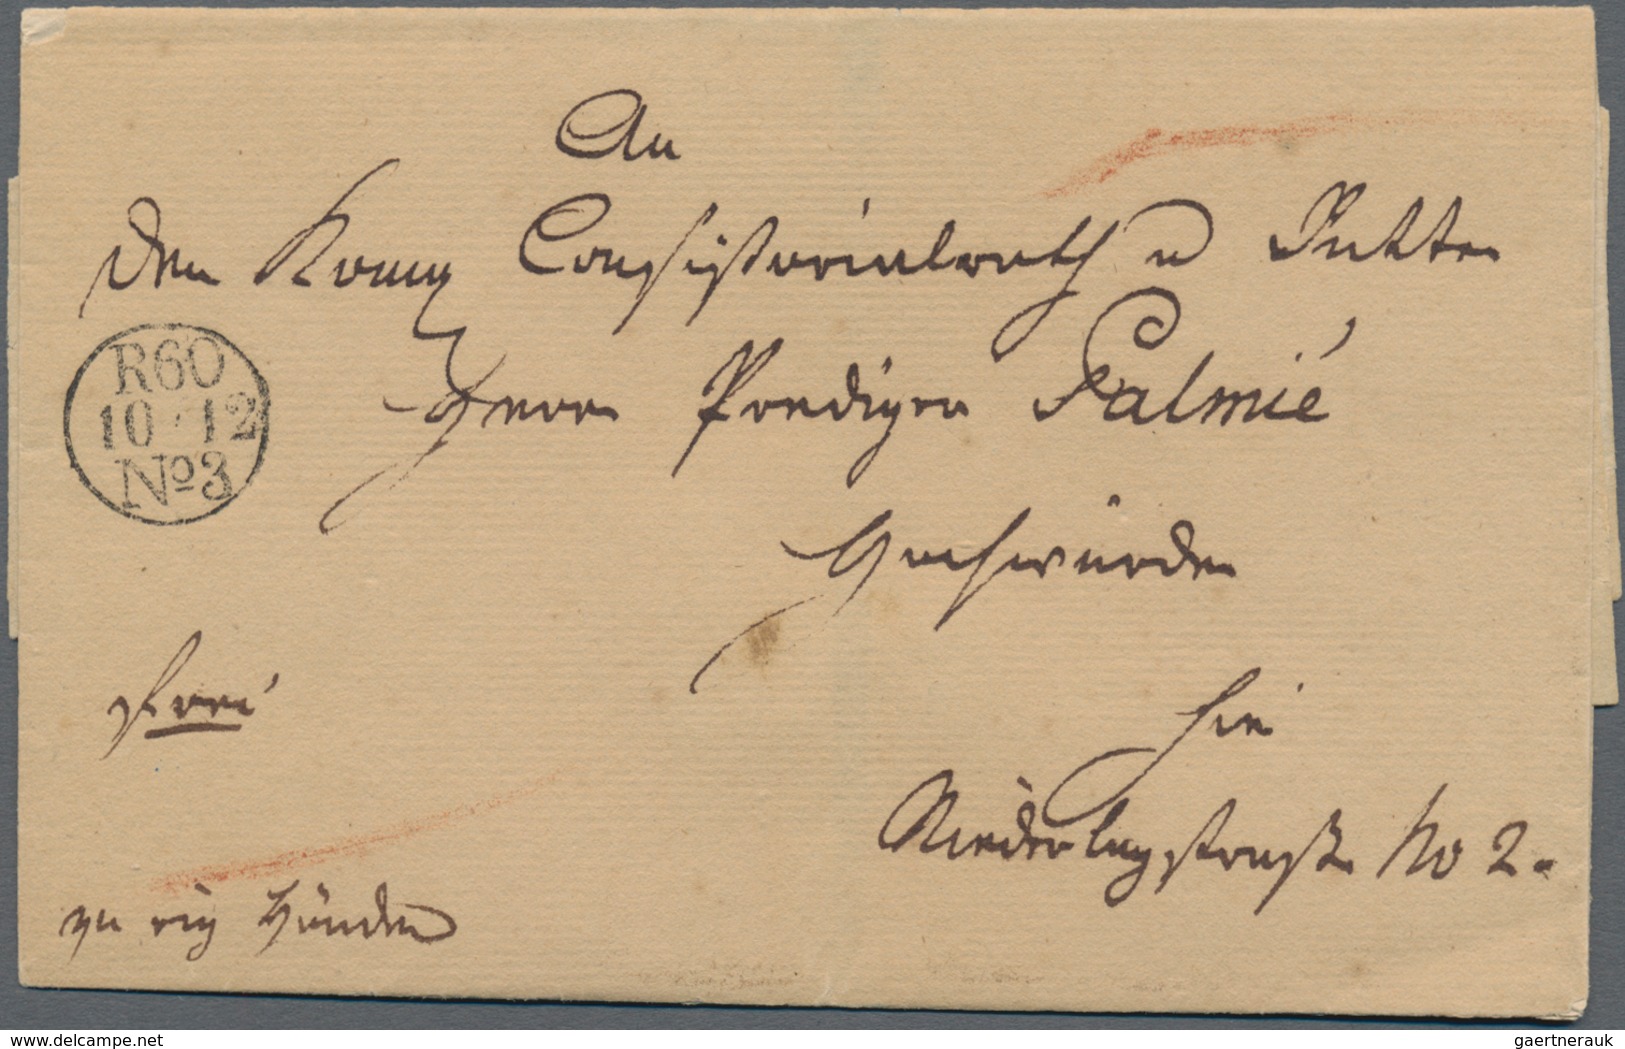 An
den König Consistorialrath u Ritter
Herrn Prediger Palmié
Hochwürden
R60
10 12
No 3
frei
hier
Niederlagstraße No 2.
zu eig Händen
delcampe.net
gaertnerauk